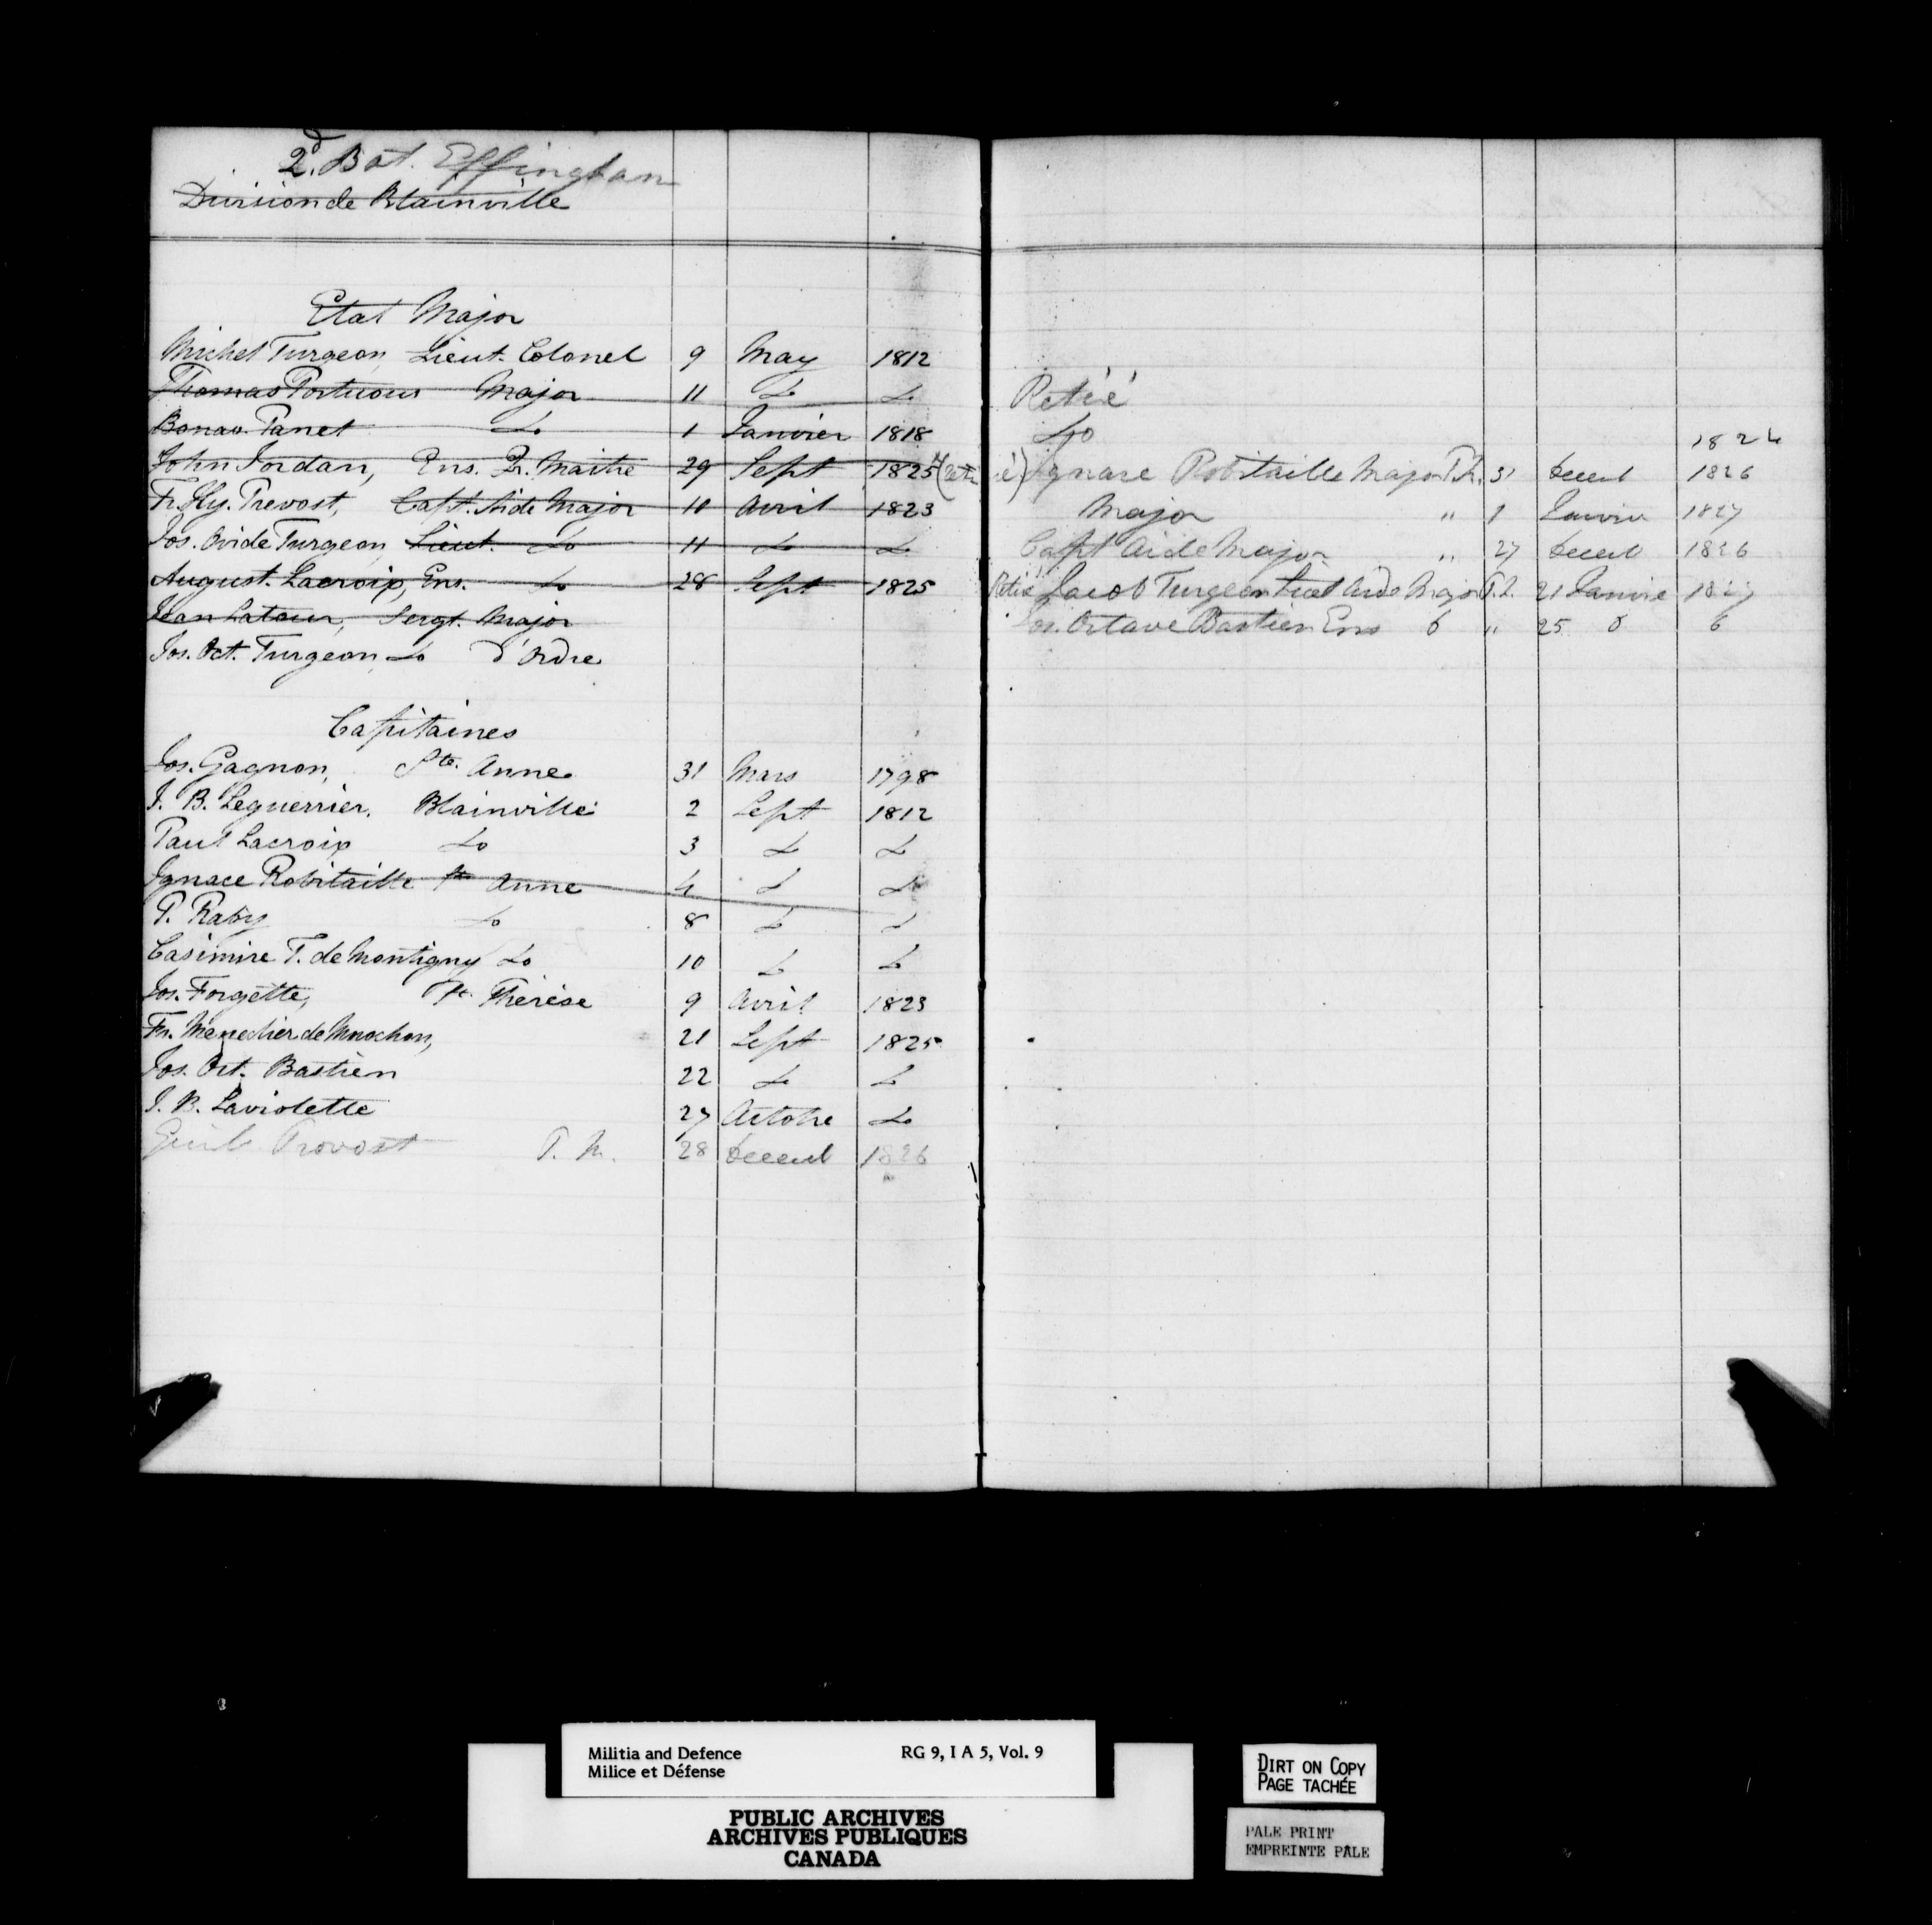 2d. Bat. Effingham
Division de Blainville
Etat Major
Michel Turgeon, Lieut. Colonel 9 May 1812
Thomas Portuous Major 11 Do Do Retiré
Bonav. Panet Do 1 Janvier 1818 Do 1824
John Jordan, Ens. Qr. Maitre 29 Sept 1825 (Retiré) Ignace Robitaille Major 31 Decem 1826
Fr. Hy. Prevost, Capt. Aide Major 10 Avril 1823 Major " 1 Janvier 1827
Jos. Ovide Turgeon, Lieut. Do 11 Do Do Capt Aide Major " 27 Decemb 1826
August. Lacroix, Ens. Do 28 Sept 1825 Retiré Jacob Turgeon Lieut Aide Major 21 Janvier 1827
Jean Latour, Sergt. Major Jos. Octave Bastien Ens " 25
Jos. Oct. Turgeon Do d'Ordre
Capitaines
Jos. Gagnon, Ste. Anne 31 Mars 1798
J. B. Leguerrier, Blainville 2 Sept 1812
Paul Lacroix Do 3 Do Do
Ignace Robitaille Ste Anne 4 Do Do
P. Raby Do 8 Do Do
Casimire T. de Montigny Do 10 Do Do
Jos. Forgette, Ste. Thérèse 9 Avril 1823
Fr. 21 Sept 1825
Jos. Oct. Bastien 22 Do Do
J. B. Laviolette 27 Octobre Do
Guil Provost 28 Decemb 1826
Militia and Defence RG 9, I A 5, Vol. 9
Milice et Défense
PUBLIC ARCHIVES
ARCHIVES PUBLIQUES
CANADA
DIRT ON COPY
PAGE TACHÉE
PALE PRINT
EMPREINTE PÂLE